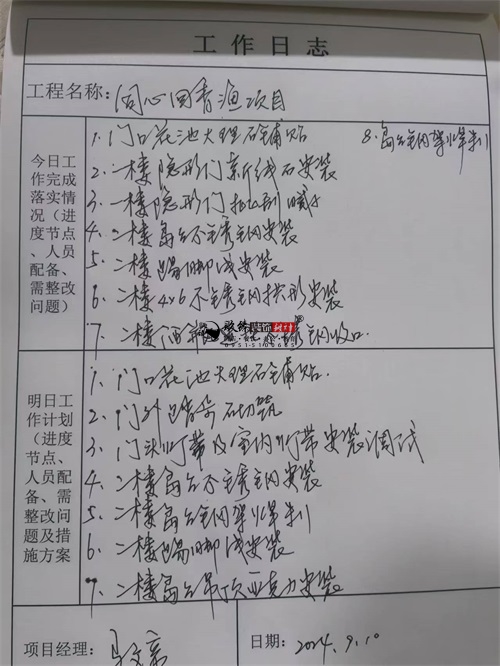 工作日志
工程名称: 同心回香渔项目
今日工作完成落实情况（进度节点、人员配备、需整改问题）
1. 门口花池大理石铺贴
8. 岛台钢架焊制
2. 一楼隐形门新线石安装
3. 一楼隐形门
4. 二楼岛台不锈钢安装
5. 二楼踢脚线安装
6. 二楼4×6不锈钢拱形安装
7. 二楼 不锈钢收口
明日工作计划（进度节点、人员配备、需整改问题及措施方案
1. 门口花池大理石铺贴
2. 门外 石切筑
3. 门头灯带及室内灯带安装调试
4. 二楼岛台不锈钢安装
5. 二楼岛台钢架焊制
6. 二楼踢脚线安装
7. 二楼岛台吊顶亚克力安装
项目经理:
日期: 2024.9.10